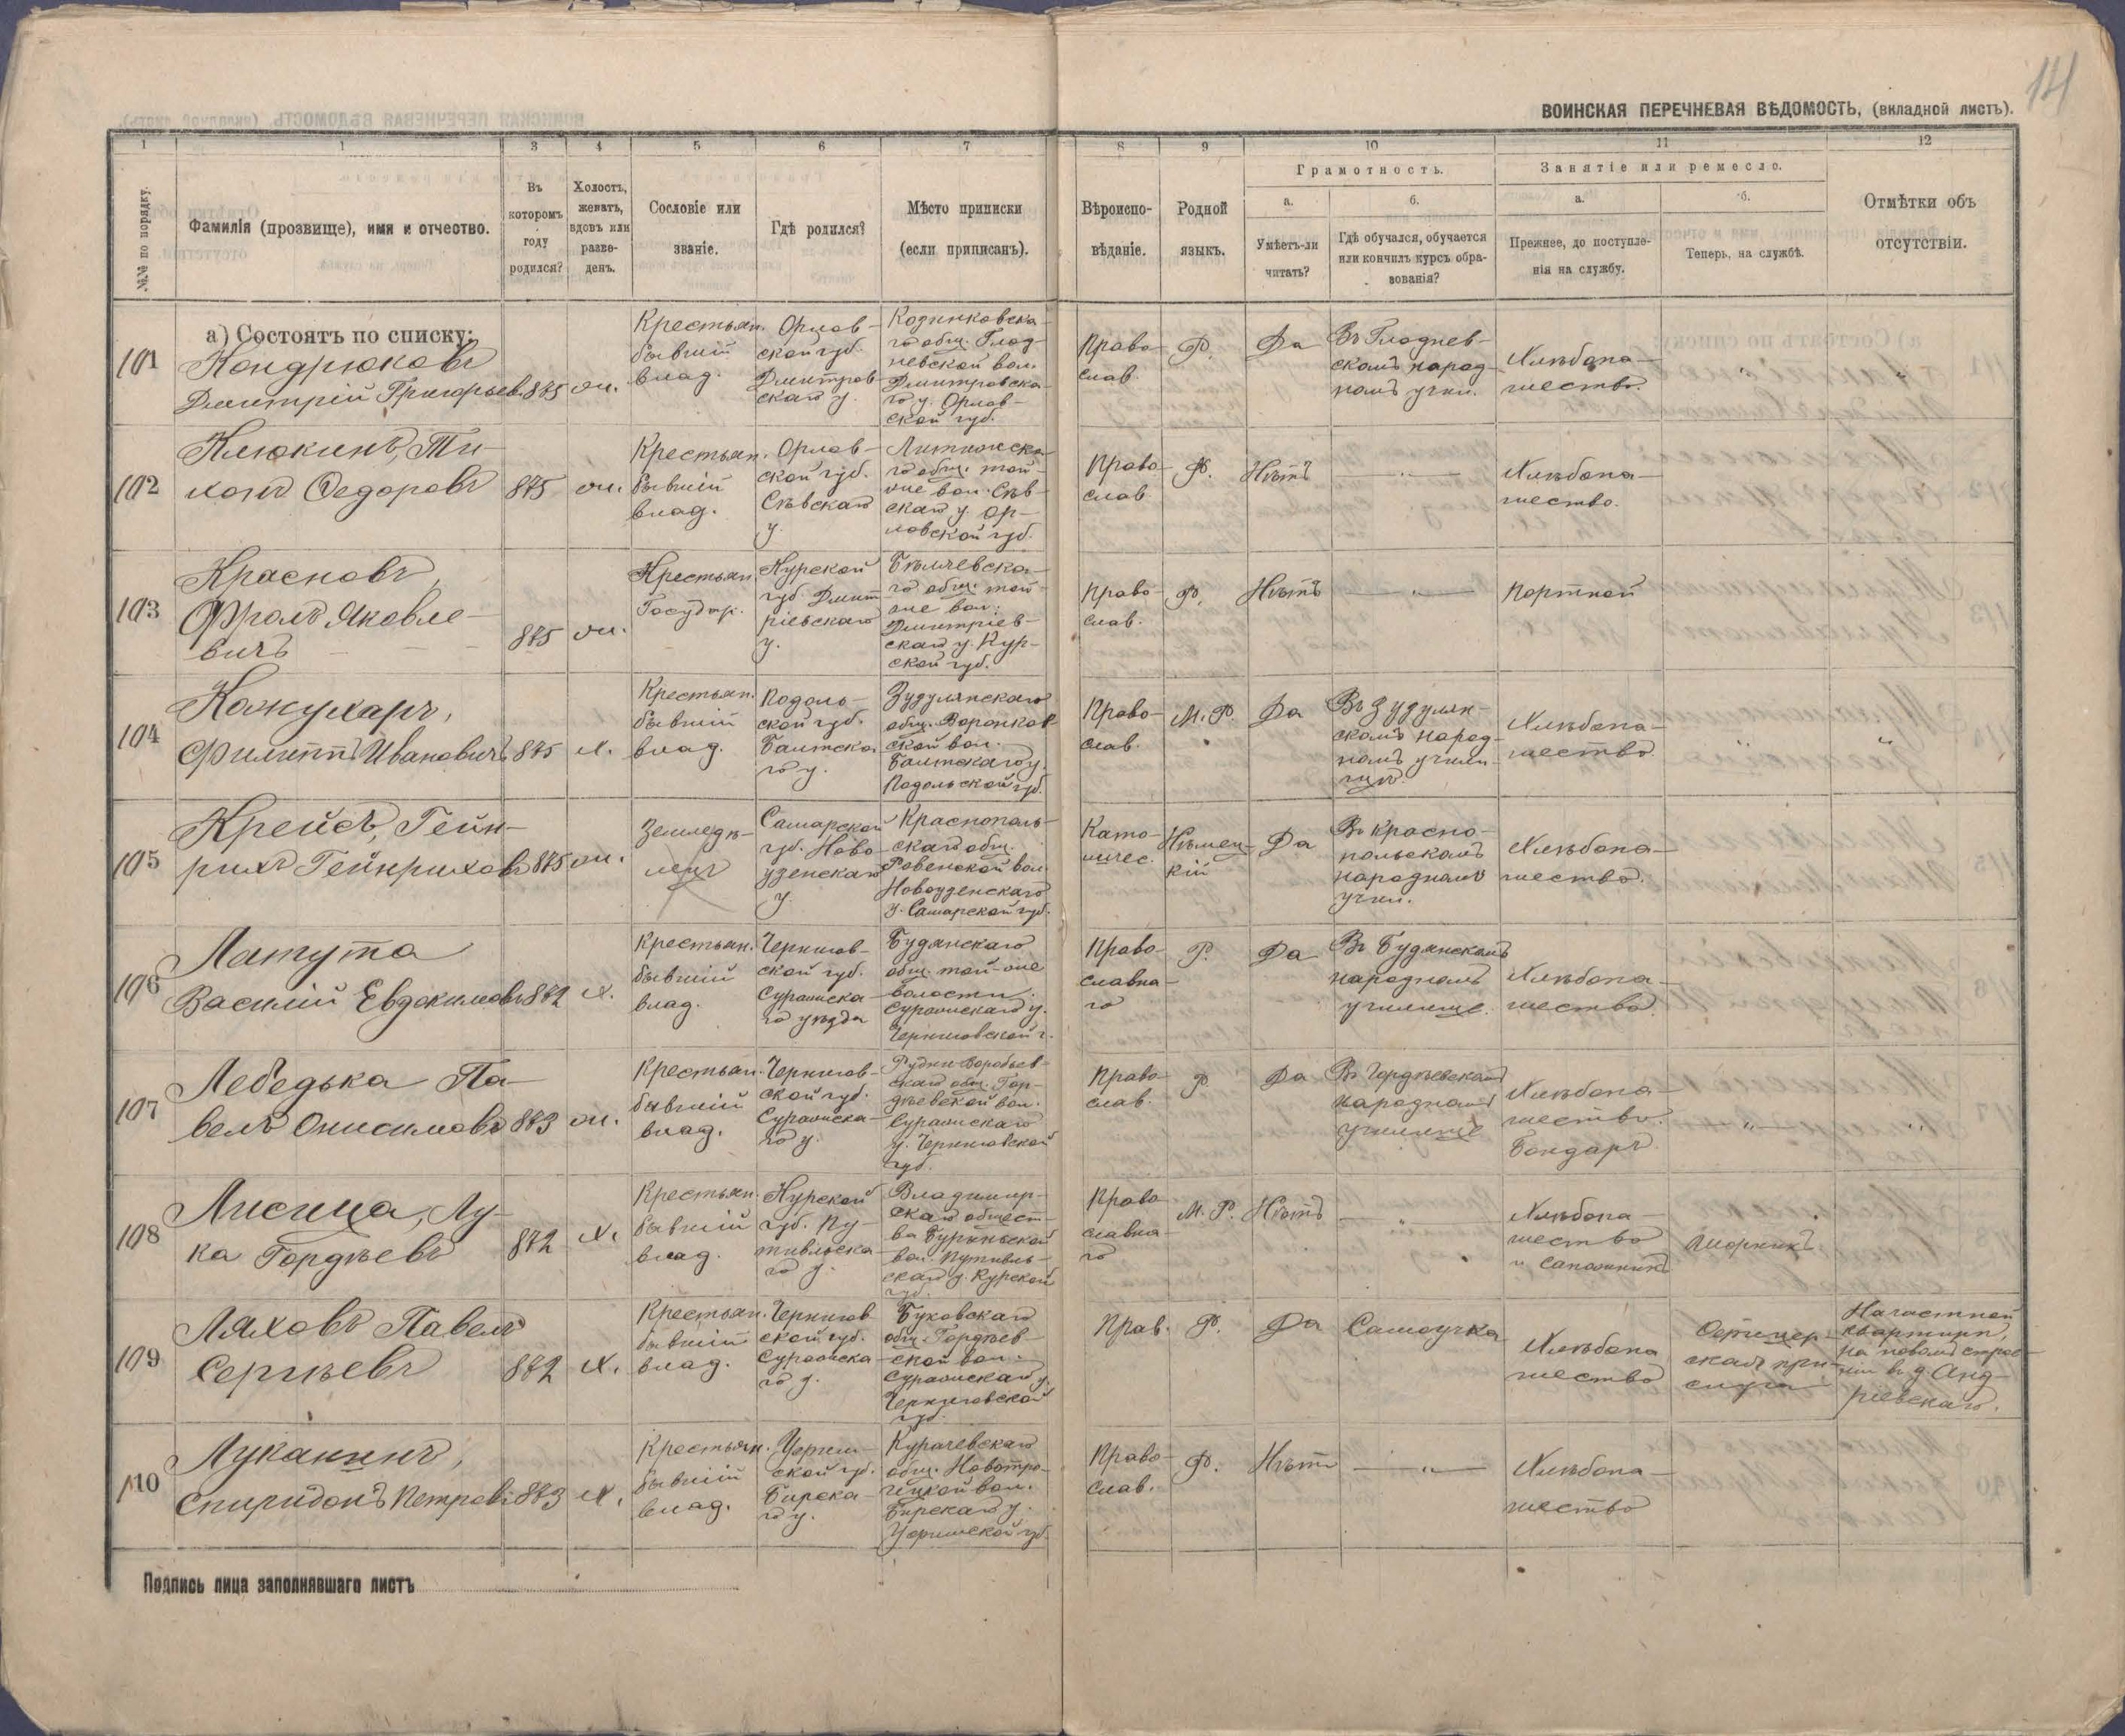 14
ВОИНСКАЯ ПЕРЕЧНЕВАЯ ВѢДОМОСТЬ, (вкладной листъ).
1 1 3 4 5 6 7 8 9 10 11 12
№№ по порядку.
Фамилія (прозвище), имя и отчество.
Въ
которомъ
году
родился?
Холостъ,
женатъ,
вдовъ или
разве-
денъ.
Сословіе или
званіе.
Гдѣ родился?
Мѣсто приписки
(если приписанъ).
Вѣроиспо-
вѣданіе.
Родной
языкъ.
Грамотность.
а.
Умѣетъ-ли
читать?
б.
Гдѣ обучался, обучается
или кончилъ курсъ обра-
зованія?
Занятіе или ремесло.
а.
Прежнее, до поступле-
нія на службу.
б.
Теперь, на службѣ.
Отмѣтки объ
отсутствіи.
а) Состоятъ по списку:
101
Кондрюковъ
Дмитрій Григорьев.
875
ж.
Крестьян.
бывшій
влад.
Орлов-
ской губ.
Дмитров-
скаго у.
го общ. Глод-
невской вол.
Дмитровска-
го у. Орлов-
ской губ.
Право-
слав.
Р.
Да
Въ Глоднев-
скомъ народ-
номъ учил.
Хлѣбопа-
шество.
102
Клюкинъ, Ти-
хонъ Федоровъ
875
ж.
Крестьян.
бывшій
влад.
Орлов-
ской губ.
Сѣвскаго
у.
го общ. той-
же вол. Сѣв-
скаго у. Ор-
ловской губ.
Право-
слав
Р.
Нѣтъ
— " —
Хлѣбопа-
шество.
103
Красновъ,
Фролъ Яковле-
вичъ
875
ж.
Крестьян.
Государ.
Курской
губ. Дмит-
ріевскаго
у.
го общ. той-
же вол.
Дмитріев-
скаго у. Кур-
ской губ.
Право-
слав.
Р.
Нѣтъ
— " —
Портной
104
Кожухарь,
Филиппъ Ивановичъ
875
х.
Крестьян.
бывшій
влад.
Подоль-
ской губ.
Балтска-
го у.
Зудулянскаго
общ. Воронков-
ской вол.
Балтскаго у.
Подольской губ.
Право-
слав.
М. Р.
Да
Въ Зудулян-
скомъ народ-
номъ учили-
щѣ.
Хлѣбопа-
шество
105
Крейсъ, Гейн-
рихъ Гейнриховъ
875
ж.
Земледѣ-
лецъ
Самарской
губ. Ново-
узенскаго
у.
Краснополь-
скаго общ.
Ровенской вол.
Новоузенскаго
у. Самарской губ.
Като-
личес.
Нѣмец-
кій
Да
Въ Красно-
польскомъ
народномъ
учил.
Хлѣбопа-
шество.
106
Латута
Василій Евдокимовъ
872
х.
Крестьян.
бывшій
влад.
Чернигов-
ской губ.
Суражска-
го уѣзда
Будянскаго
общ. той-же
волости.
Суражскаго у.
Черниговской г.
Право-
славна-
го
Р.
Да
Въ Будянскомъ
народномъ
училище.
Хлѣбопа-
шество.
107
Лебедька Па-
велъ Онисимовъ
873
ж.
Крестьян.
бывшій
влад.
Чернигов-
ской губ.
Суражска-
го у.
Рудни-Воробьев-
скаго общ. Гор-
дѣевской вол.
Суражскаго
у. Черниговской
губ.
Право-
слав.
Р
Да
Въ Гордѣевскомъ
народномъ
училище
Хлѣбопа-
шество.
Бондарь
— " —
108
Лисица, Лу-
ка Гордѣевъ
872
х.
Крестьян.
бывшій
влад.
Курской
губ. Пу-
тивльска-
го у.
Владимир-
скаго общест-
ва Бурынской
вол. Путивль-
скаго у. Курской
губ.
Право-
славна-
го
М. Р.
Нѣтъ
— " —
Хлѣбопа-
шество
и Сапожникъ
Шорникъ
109
Ляховъ Павелъ
Сергѣевъ
872
х.
Крестьян.
бывшій
влад.
Чернигов-
ской губ.
Суражска-
го у.
Буковскаго
общ. Гордѣев-
ской вол.
Суражскаго у.
Черниговской
губ.
Прав.
Р.
Да
Самоучка
Хлѣбопа
шество
Офицер-
ская при-
слуга
На частной
квартирѣ,
на новомъ строе-
ніи въ д. Анд-
ріевскаго.
110
Луканинъ,
Спиридонъ Петровъ
873
х.
Крестьян.
бывшій
влад.
Уфим-
ской губ.
Бирска-
го у.
общ. Новотро-
ицкой вол.
Бирскаго у.
Уфимской губ.
Право-
слав.
Р.
Нѣтъ
— " —
Хлѣбопа-
шество
Подпись лица заполнявшаго листъ